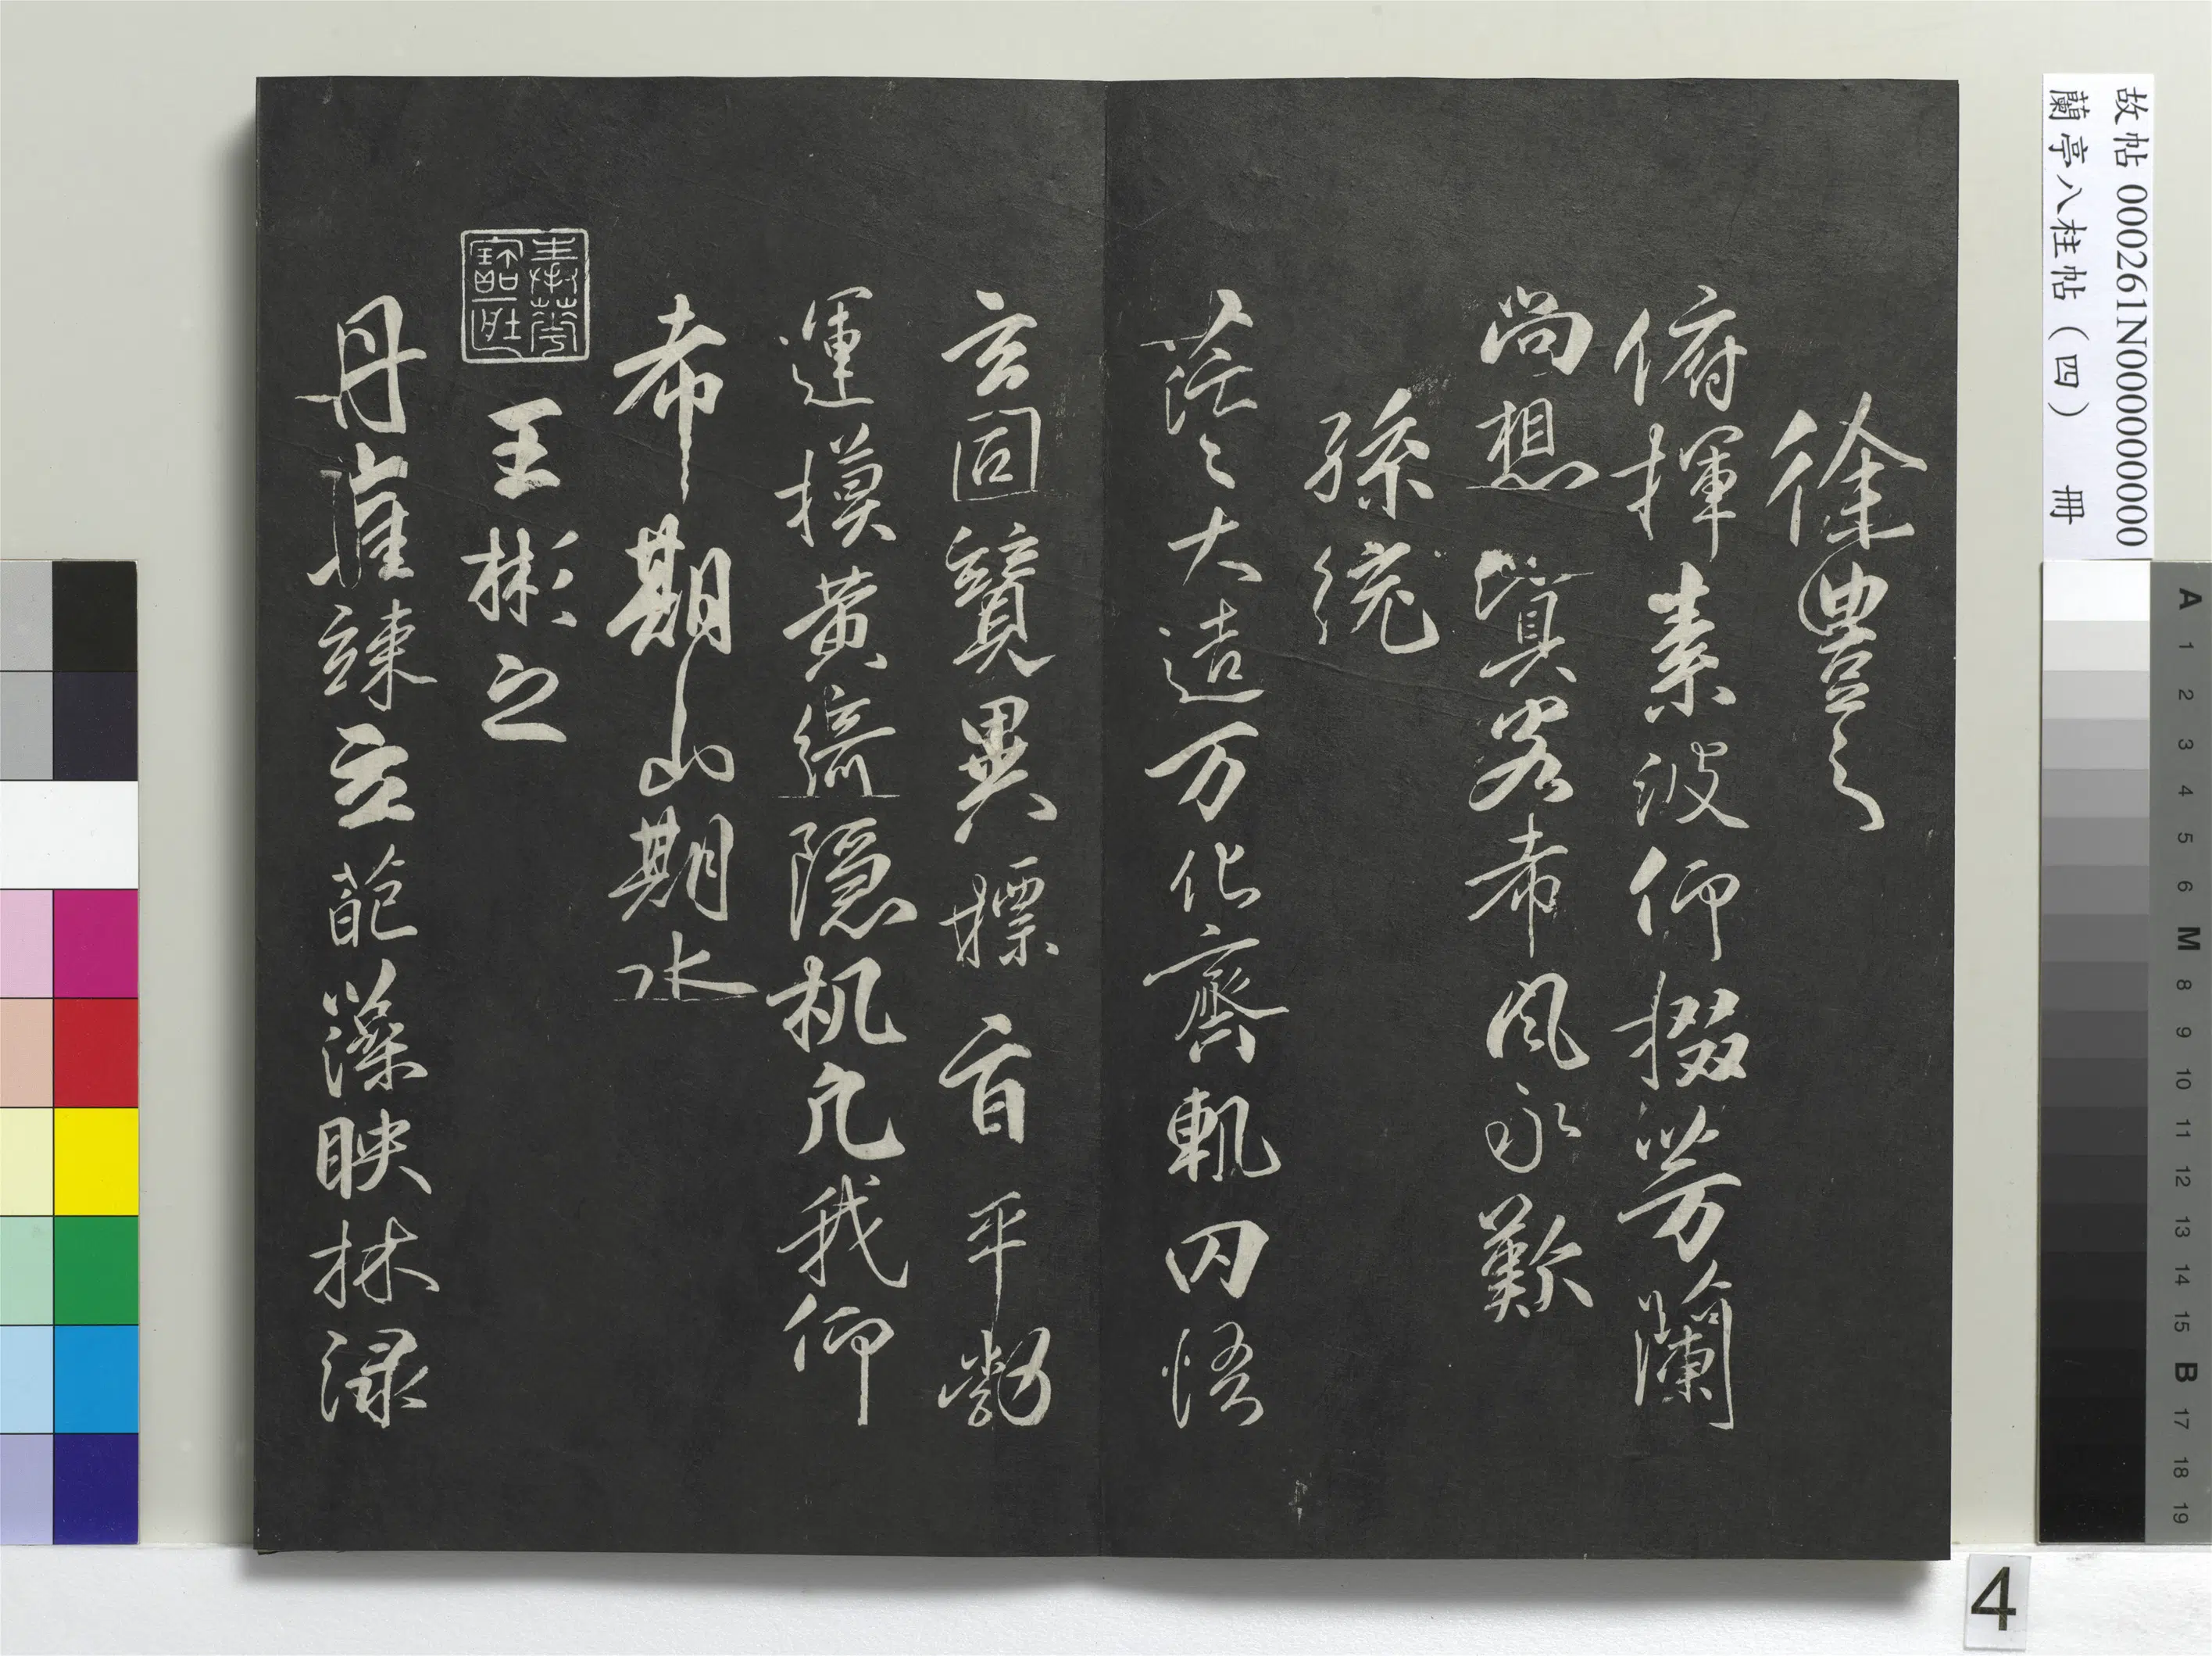 徐豊之
俯揮素波仰掇芳蘭
尚想客希風永歎
孫統
茫〻大造万化齊軌罔悟
玄同競異摽旨平勃
運摸黄綺隱机凢我仰
希期山期水
王彬之
丹崖竦立葩藻映林渌
故帖 000261N000000000
蘭亭八柱帖（四） 冊
A 1 2 3 4 5 6 M 8 9 10 11 12 13 14 15 B 17 18 19
4